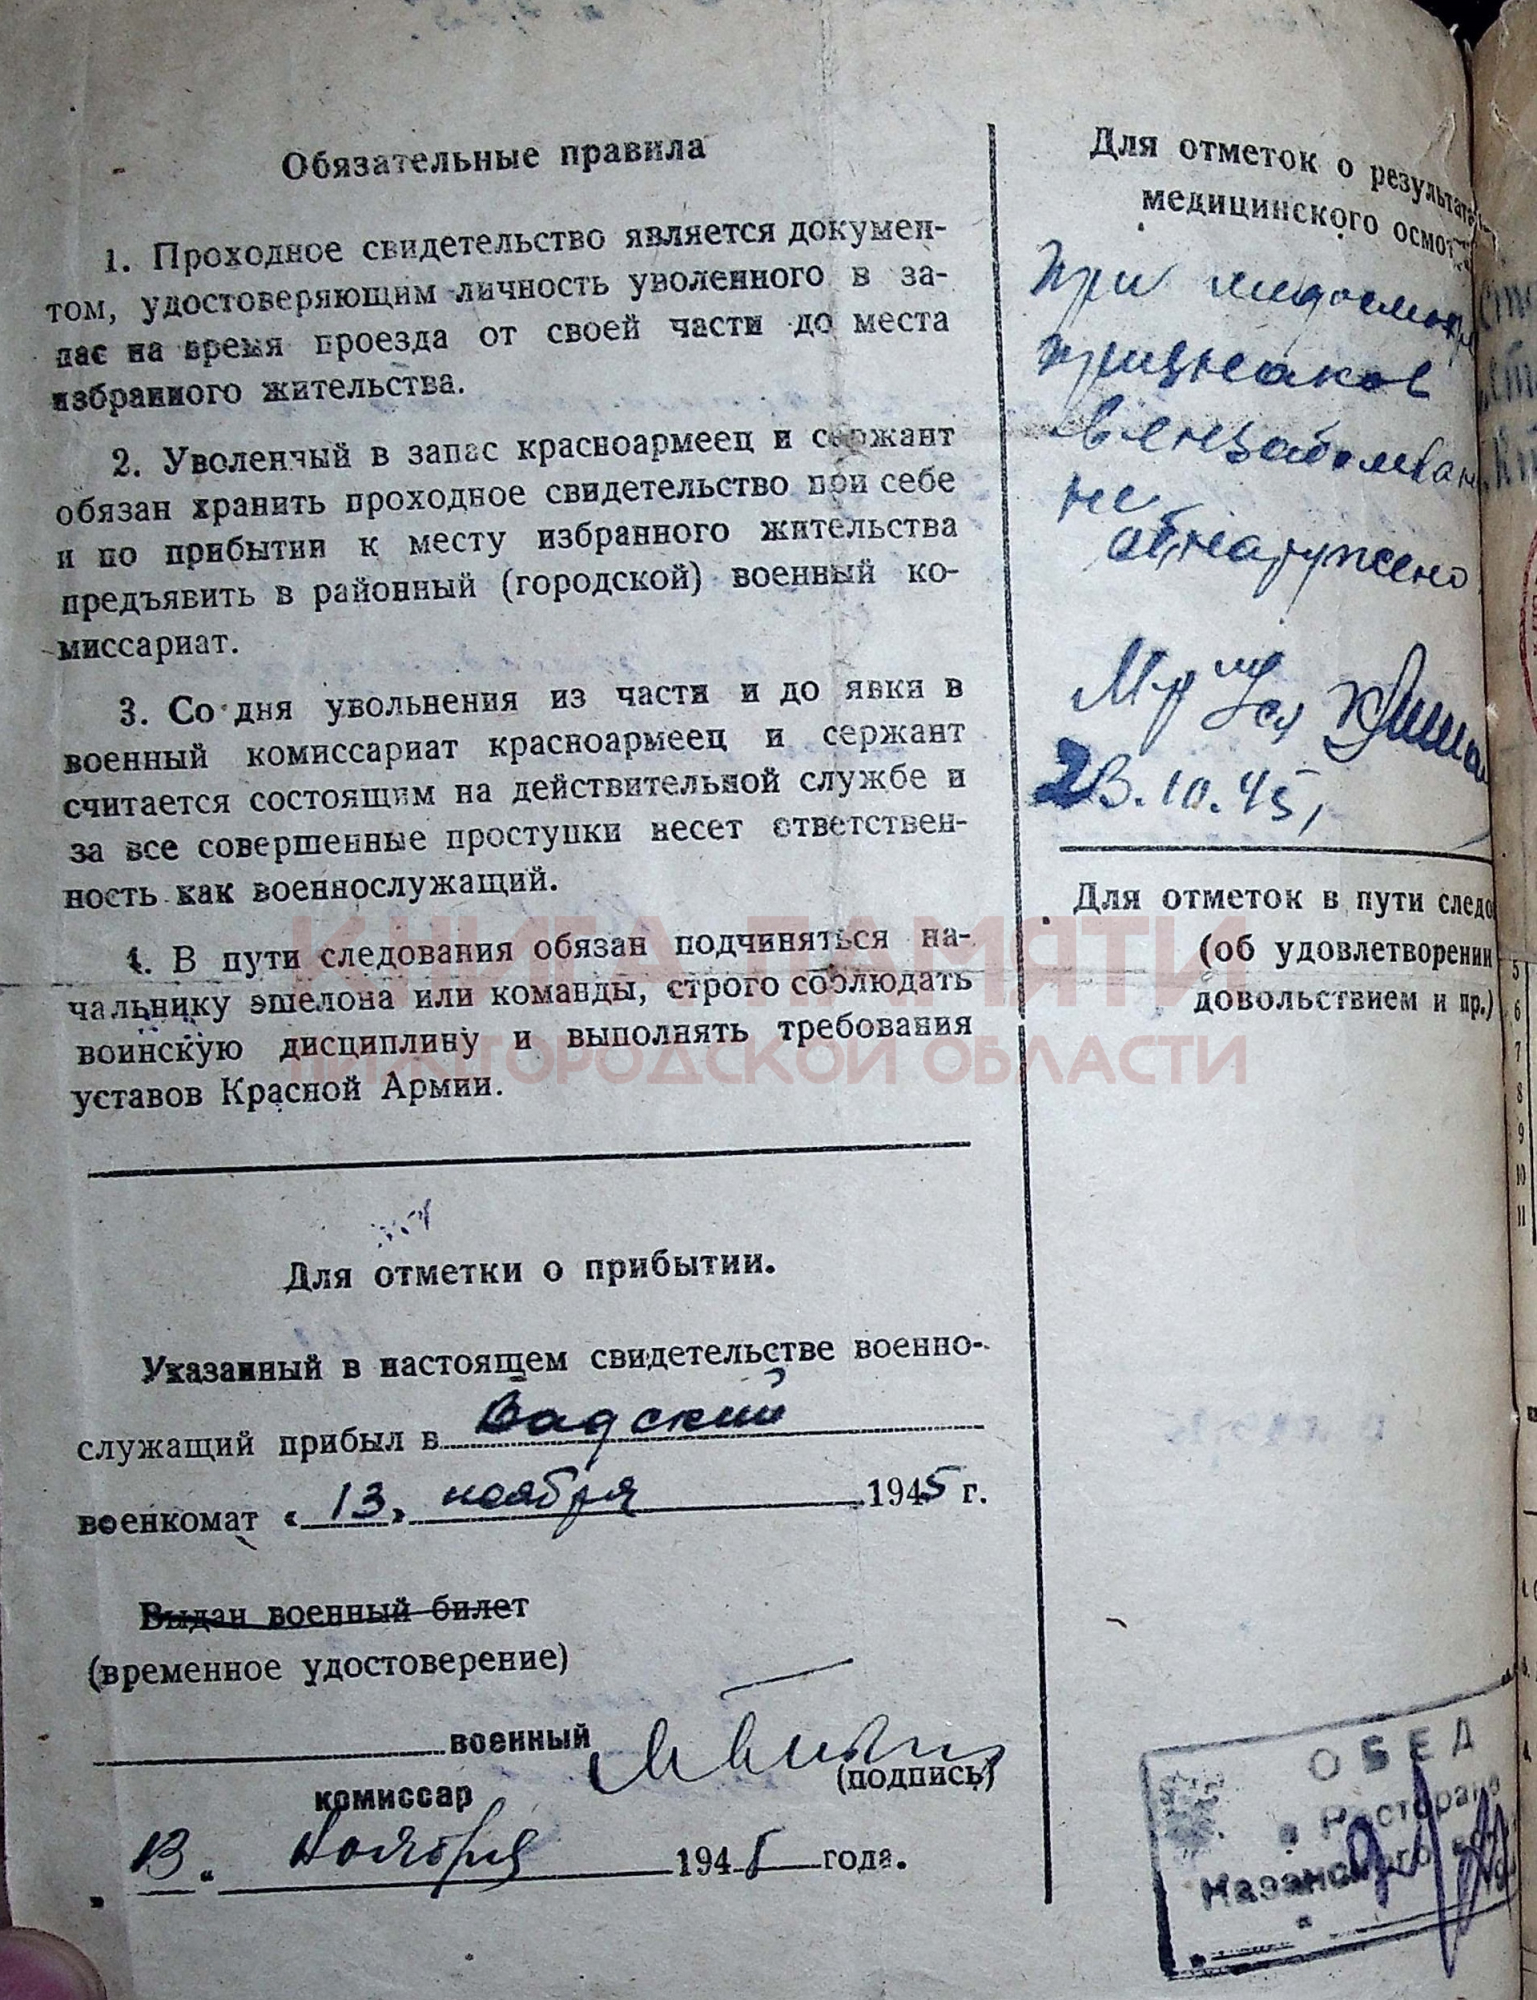 Обязательные правила
1. Проходное свидетельство является докумен-
том, удостоверяющим личность уволенного в за-
пас на время проезда от своей части до места
избранного жительства.
2. Уволенный в запас красноармеец и сержант
обязан хранить проходное свидетельство при себе
и по прибытии к месту избранного жительства
предъявить в районный (городской) военный ко-
миссариат.
3. Со дня увольнения из части и до явки в
военный комиссариат красноармеец и сержант
считается состоящим на действительной службе и
за все совершенные проступки несет ответствен-
ность как военнослужащий.
4. В пути следования обязан подчиняться на-
чальнику эшелона или команды, строго соблюдать
воинскую дисциплину и выполнять требования
уставов Красной Армии.
Для отметки о прибытии.
Указанный в настоящем свидетельстве военно-
служащий прибыл в Вадский
военкомат « 13 » ноября 1945 г.
Выдан военный билет
(временное удостоверение)
военный
(подпись)
комиссар
„ 13 “ ноября 1945 года.
Для отметок о результата
медицинского осмот
При медосмотр
признаков
вензаболеван
не
обнаружено
23.10.45,
Для отметок в пути следо
(об удовлетворении
довольствием и пр.)
ОБЕД
в Ресторане
Казанского
5
6
7
8
9
10
11
КНИГА ПАМЯТИ
НИЖЕГОРОДСКОЙ ОБЛАСТИ